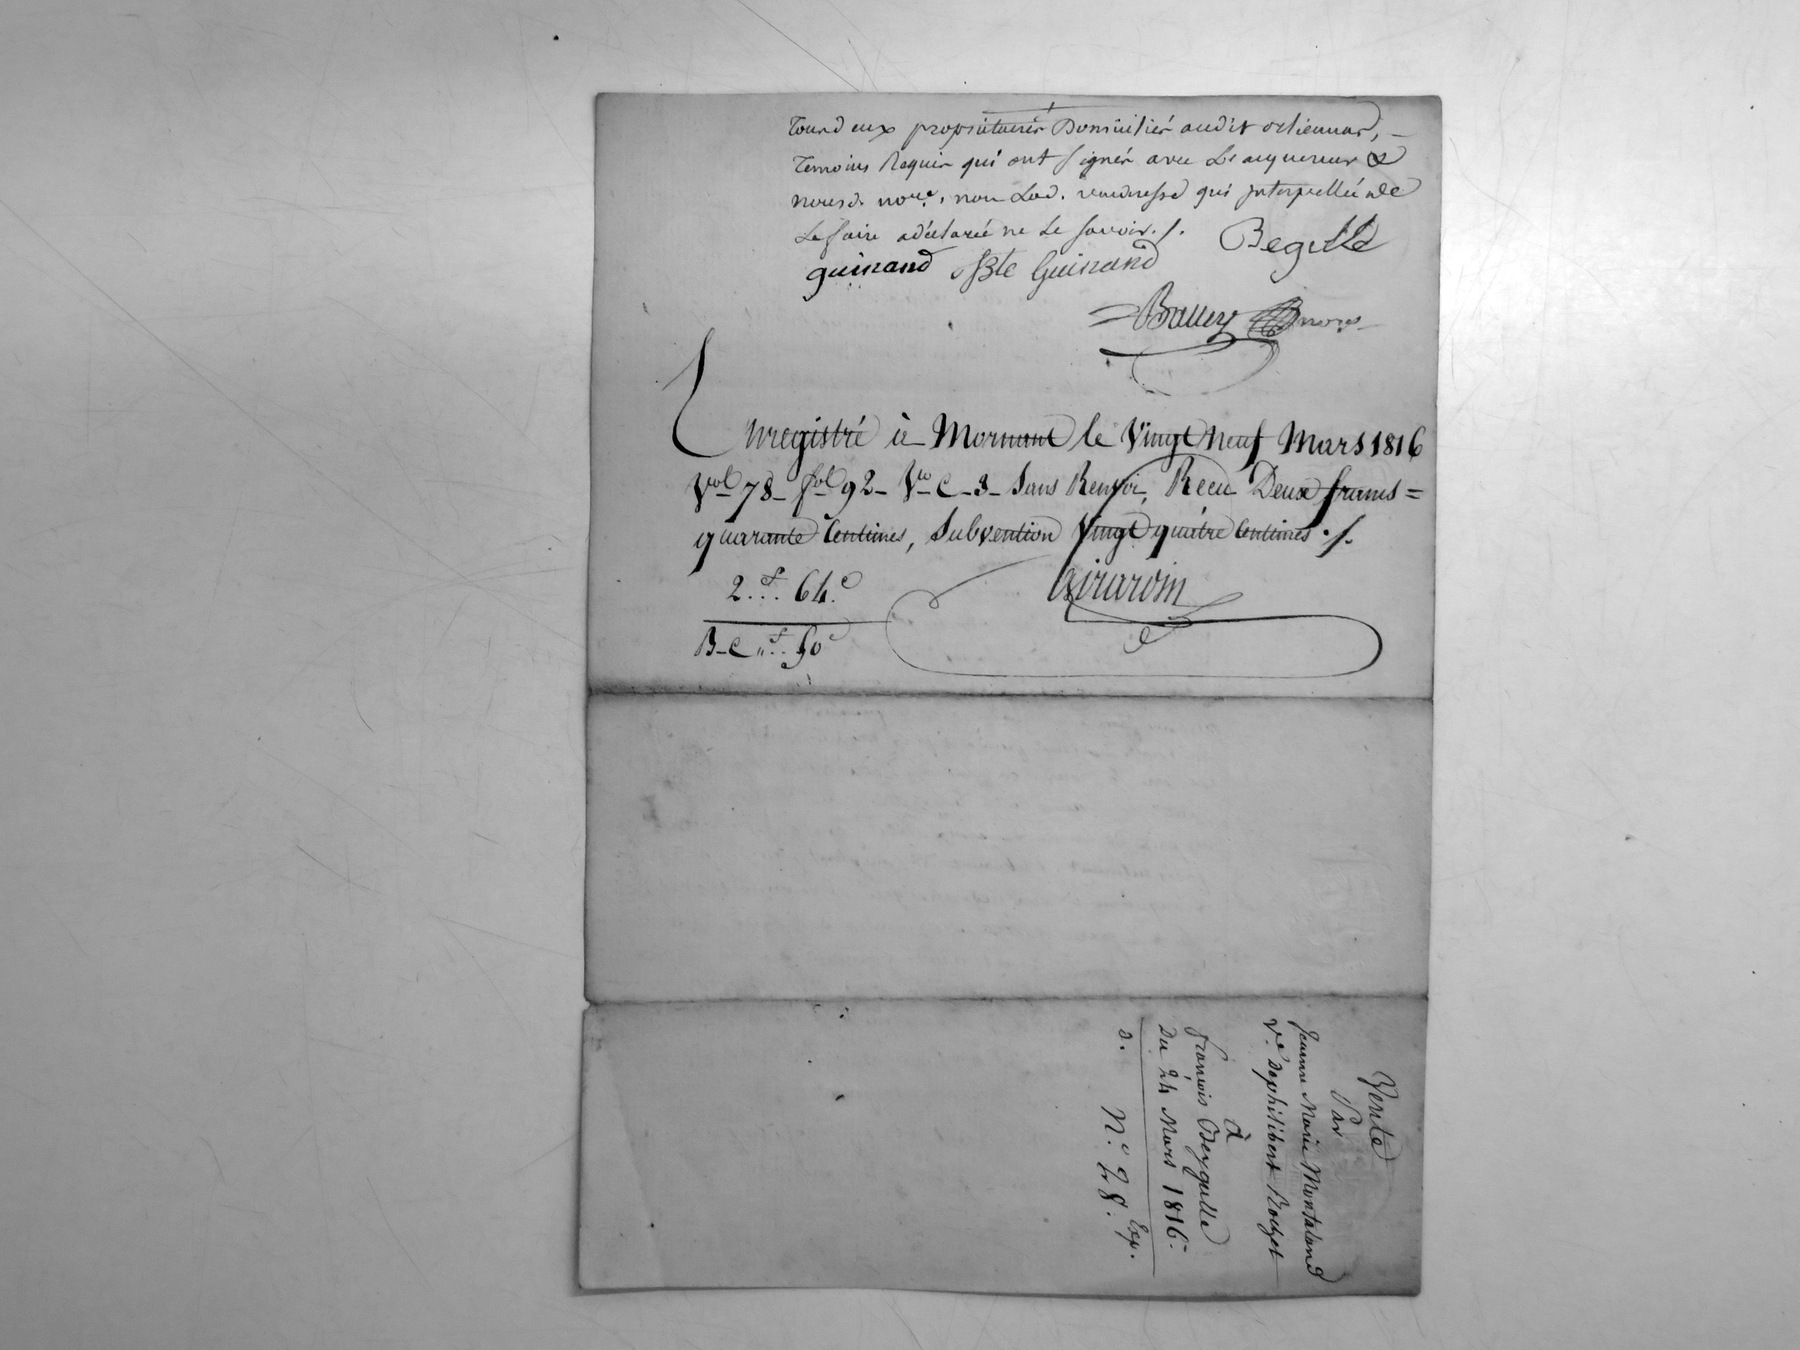 Tous deux propriétaires Domiciliés audit orlienas,
Temoins Requis qui ont signés avec L'acquereur &
nousd. not.re, non Lad. venderesse qui Interpellée de
Le faire a déclaré ne Le savoir ./.
Begulle
guinand Bte Guinand
Enregistré à Mornant le Vingt Neuf Mars 1816
Vol 78 - fol 92 - Vo C - 3 - Sans Renvoi, Recu Deux francs =
quarante Centimes, Subvention Vingt quatre Centimes ./.
2.f 64.c
Girardin
B - C „f. 50c
Vente
Par
Jeanne Marie Montaland
Ve. de philibert
à
françois Beygulle
Du 24 Mars 1816.
Exp.
N.o 28.